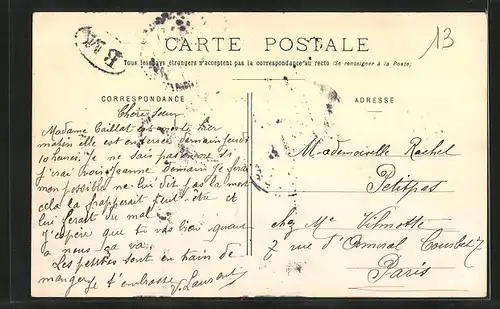 CARTE POSTALE
13
B M
Tous les pays étrangers n'acceptent pas la correspondance au recto (Se renseigner à la Poste)
CORRESPONDANCE
Chère sœur
Madame Caillat est morte hier
matin elle est enterrée demain jeudi
10 heures. Je ne sais pas encore si
j'irai voir Jeanne demain je ferai
mon possible ne lui dit pas la mort
cela la frapperait peut être et
lui ferait du mal
J'espère que tu vas bien quant
a nous ça va.
Les petites sont en train de
manger je t'embrasse J. Laurent
ADRESSE
Mademoiselle Rachel
Petitpas
chez Me Vilmotte
2 rue d'Amiral Courbet 7
Paris